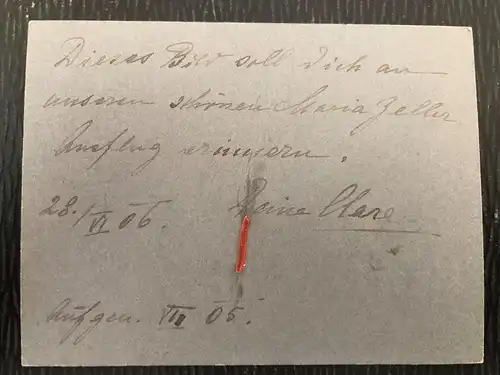 Dieses Bild soll Dich an
unseren schönen Maria Zeller
Ausflug erinnern.
28./VI 06. Deine Clare
Aufgen. VIII 05.